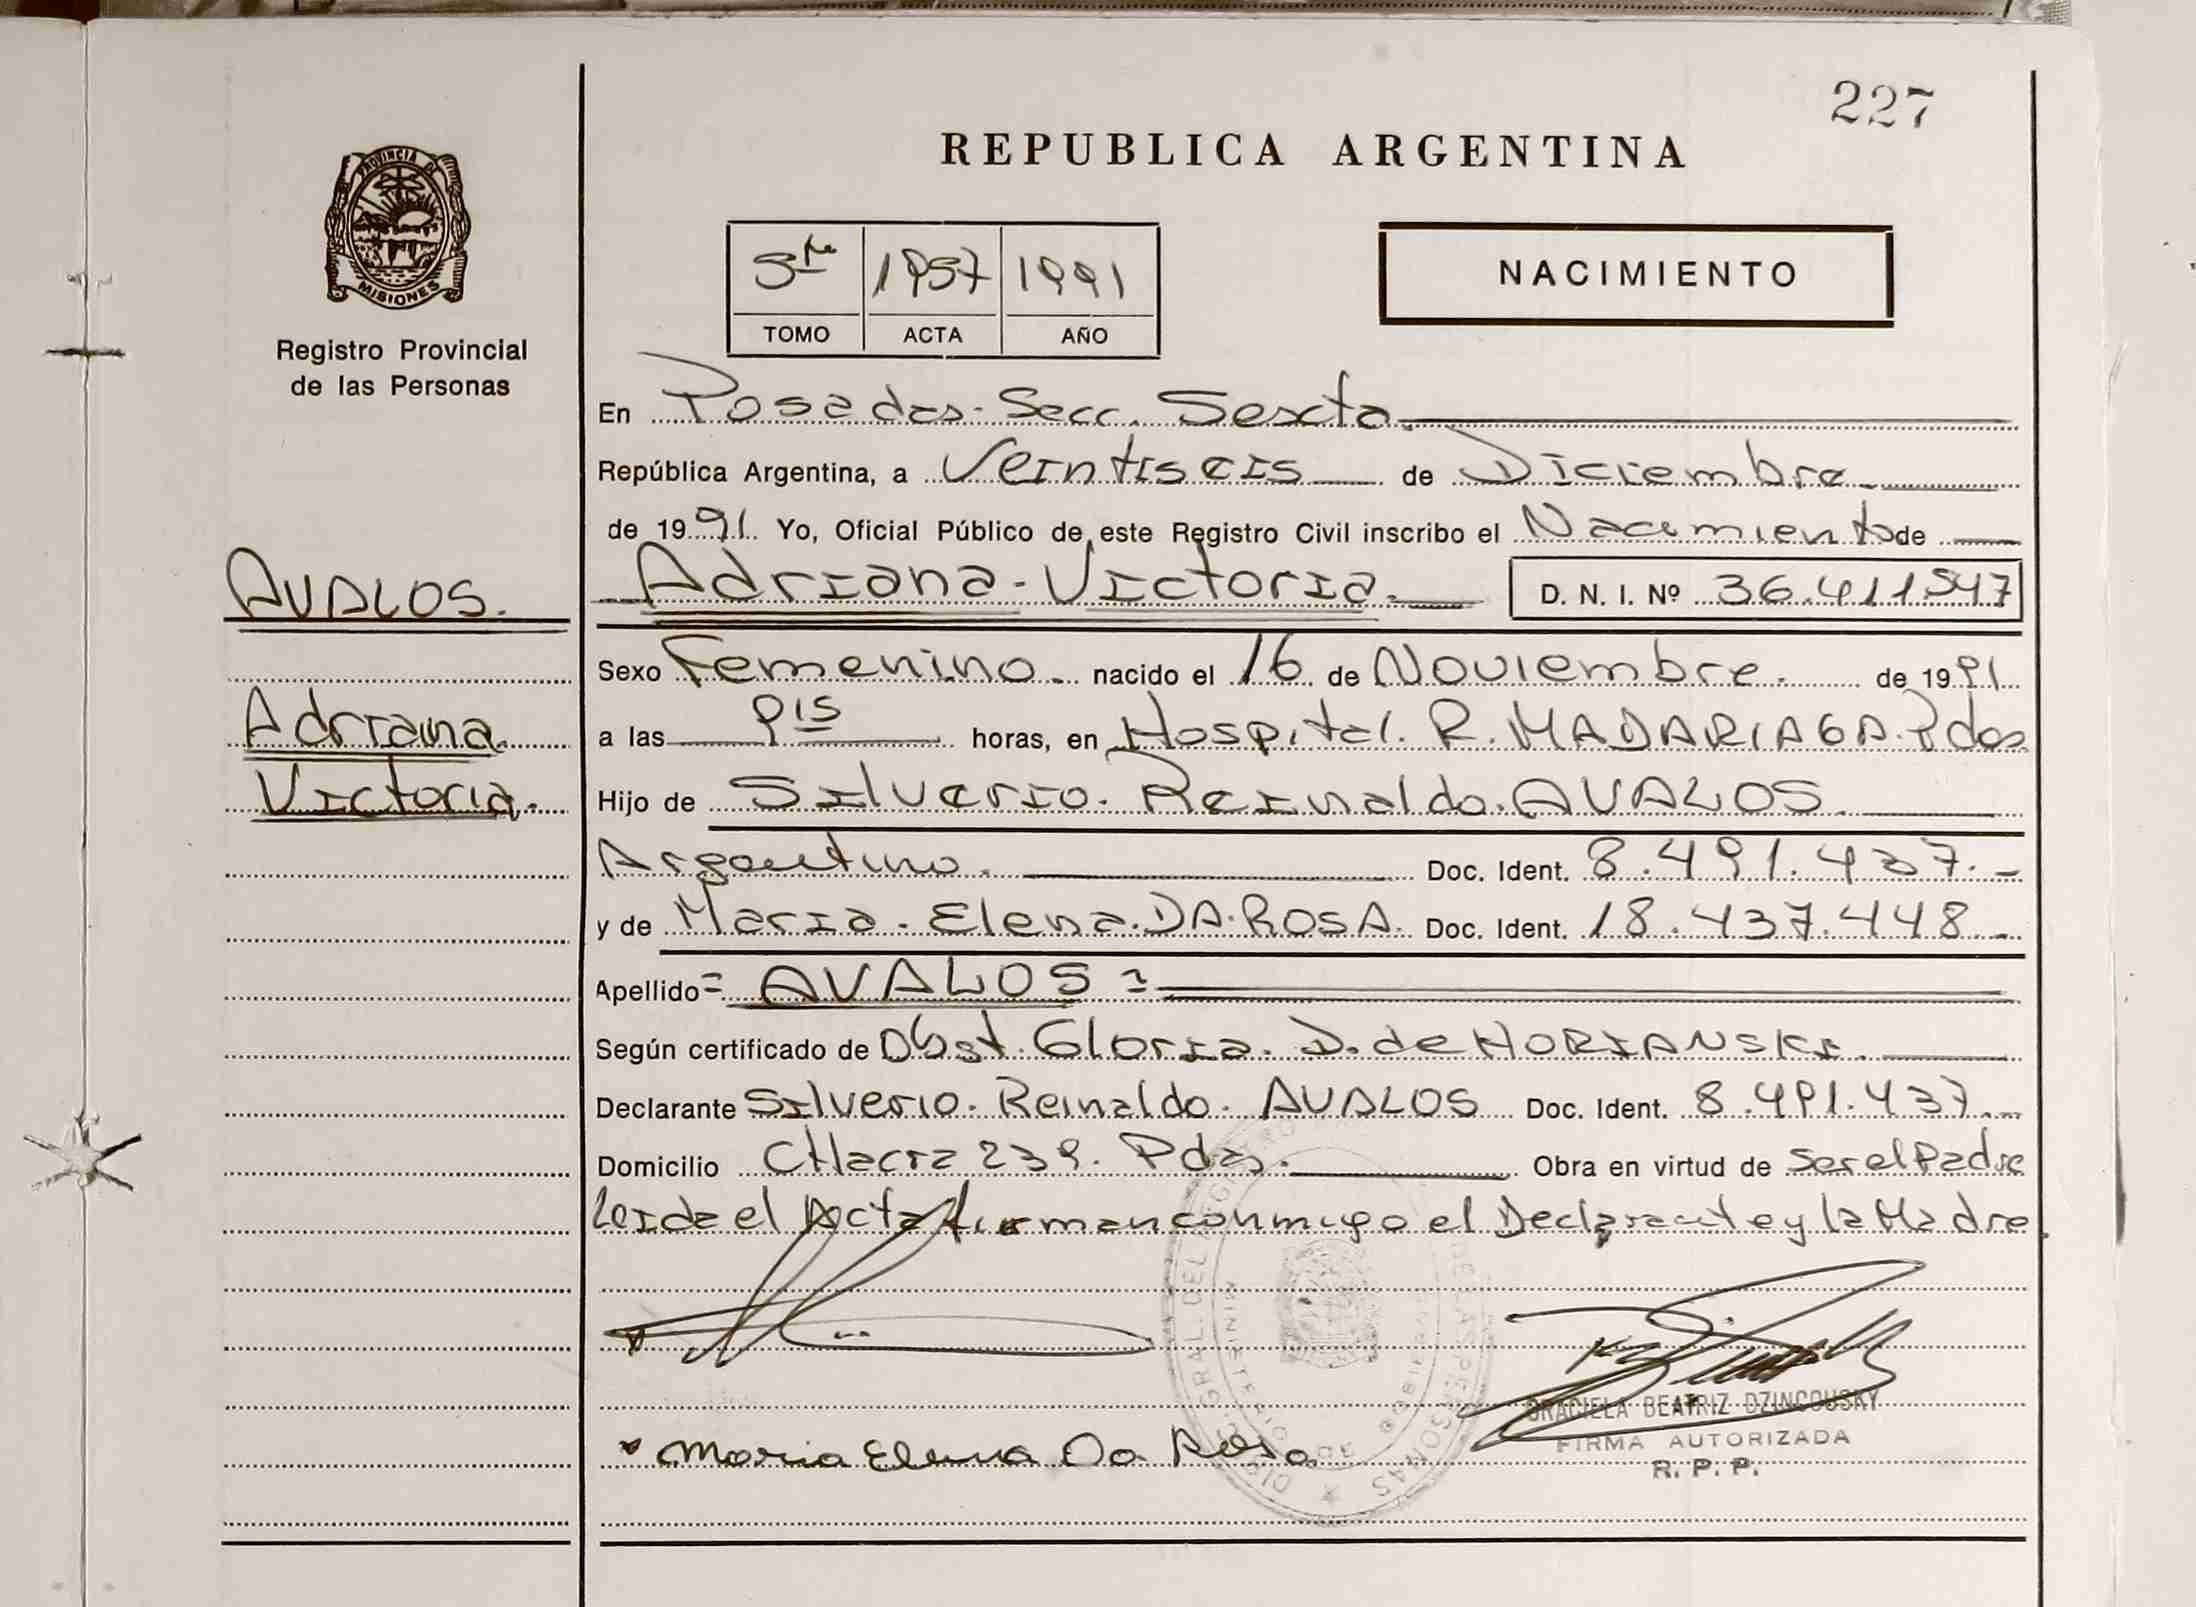 227
REPUBLICA ARGENTINA
PROVINCIA DE
MISIONES
Registro Provincial
de las Personas
5to 1957 1991
TOMO ACTA AÑO
NACIMIENTO
En Posadas. Secc. Sexta.
República Argentina, a Veintiseis de Diciembre
de 1991 Yo, Oficial Público de este Registro Civil inscribo el Nacimiento de
AVALOS.
Adriana
Victoria.
Adriana - Victoria. D. N. I. Nº 36.411.547
Sexo Femenino. nacido el 16 de Noviembre. de 1991
a las 9 15 horas, en Hospital. R. MADARIAGA. Pdas
Hijo de Silverio. Reinaldo. AVALOS.
Argentino. Doc. Ident. 8.491.437.-
y de Maria. Elena. DA. ROSA. Doc. Ident. 18.437.448.-
Apellido = AVALOS =
Según certificado de Obst. Gloria. D. de HORIANSKI.
Declarante Silverio. Reinaldo. AVALOS Doc. Ident. 8.491.437.
Domicilio CHacra 239. Pdas. Obra en virtud de Ser el Padre
Leida el Acta firman conmigo el Declarante y la Madre.
Maria Elena Da Rosa
GRACIELA BEATRIZ DZINCOUSKY
FIRMA AUTORIZADA
R. P. P.
MINISTERIO DE GOBIERNO